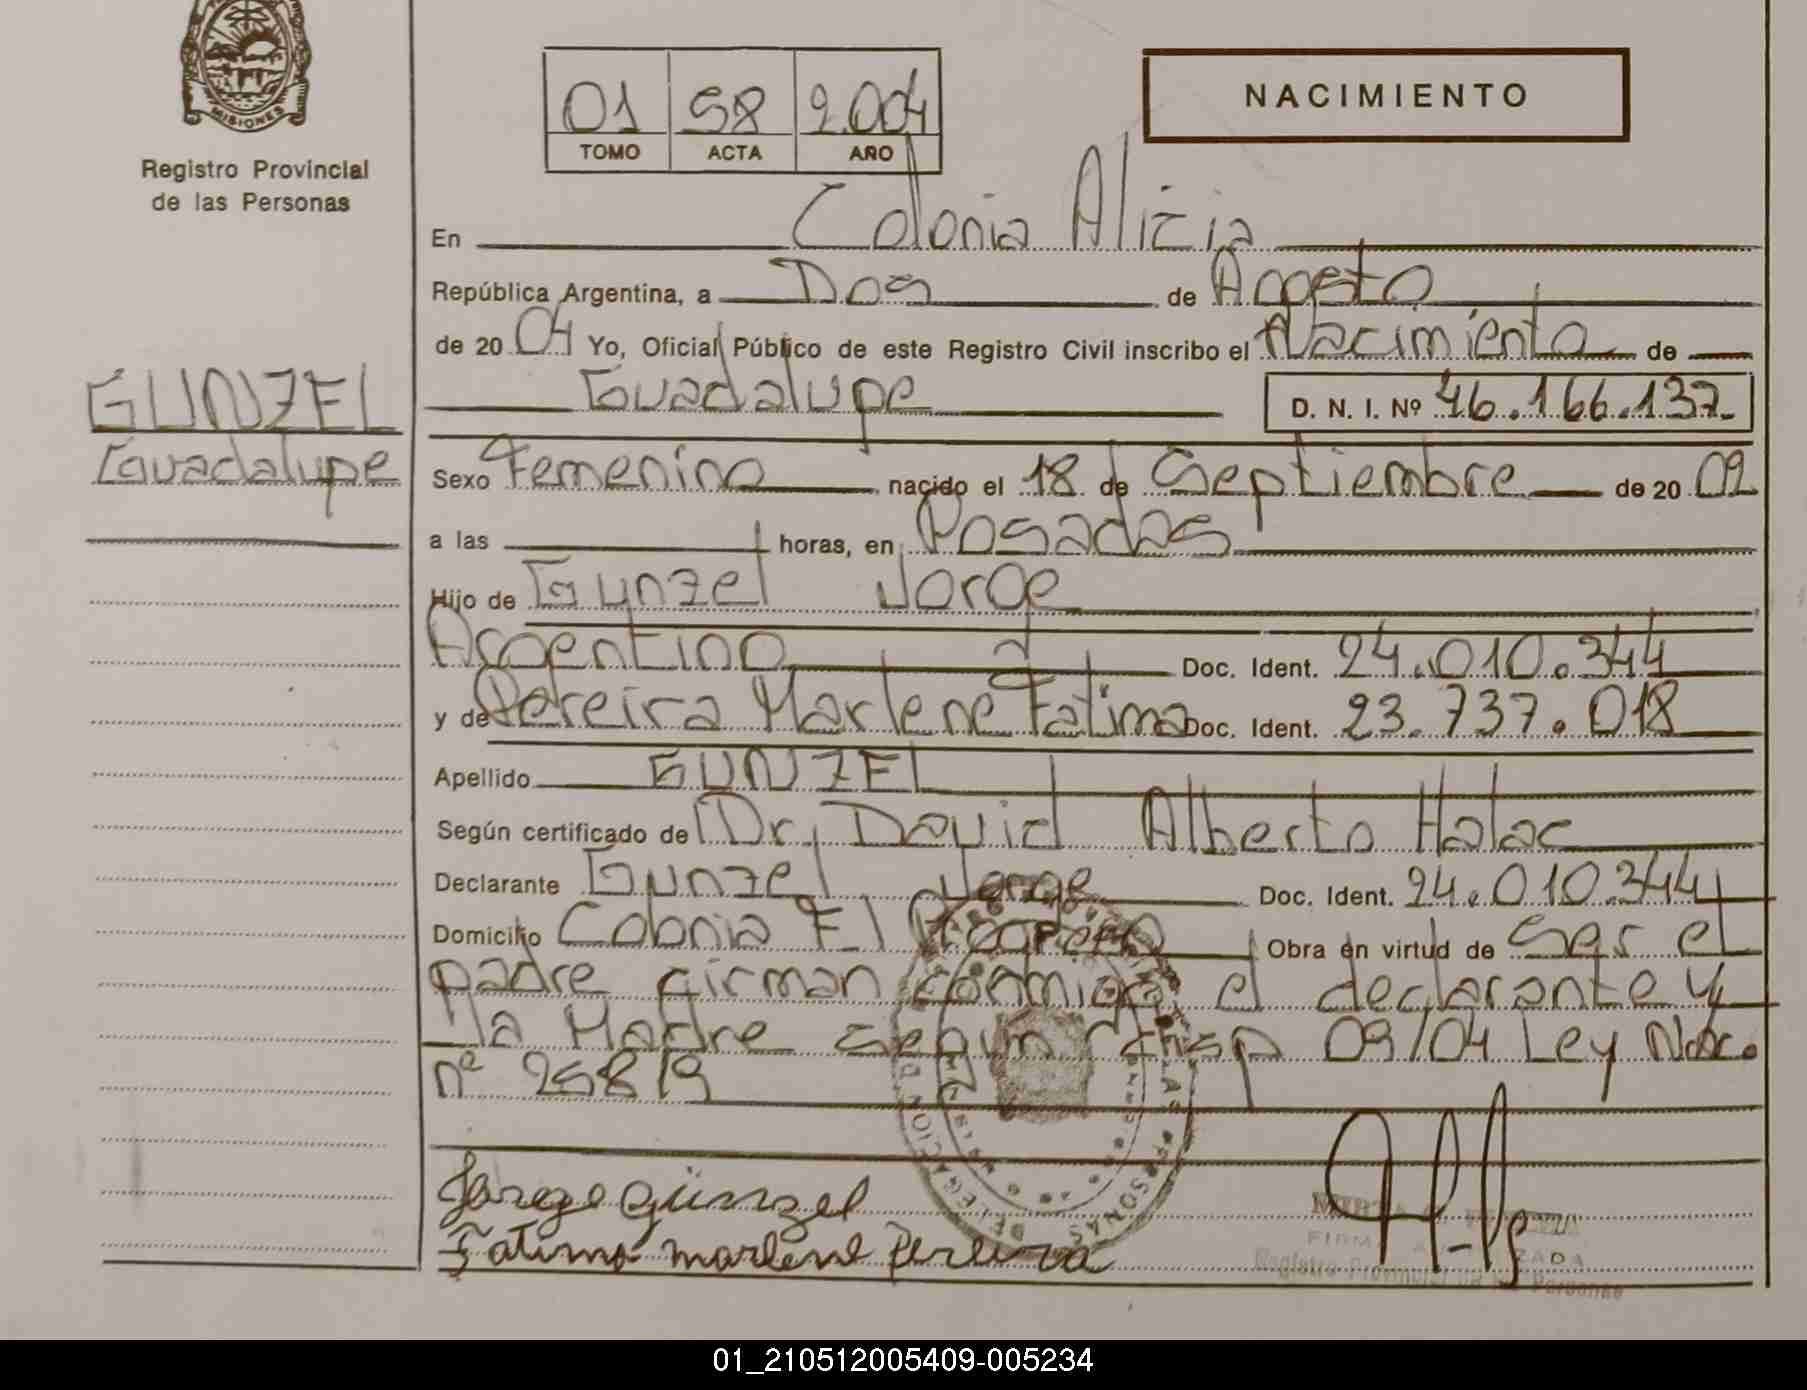 MISIONES
Registro Provincial
de las Personas
01 58 2.004
TOMO ACTA AÑO
NACIMIENTO
En Colonia Alicia
República Argentina, a Dos de Agosto
de 20 04 Yo, Oficial Público de este Registro Civil inscribo el Nacimiento de
Guadalupe D. N. I. Nº 46.166.137
GUNZEL
Guadalupe
Sexo Femenino nacido el 18 de Septiembre de 20 02
a las horas, en Posadas
Hijo de Gunzel Jorge
Argentino Doc. Ident. 24.010.344
y de Pereira Marlene Fatima Doc. Ident. 23.737.018
Apellido GUNZEL
Según certificado de Dr. David Alberto Halac
Declarante Gunzel Jorge Doc. Ident. 24.010.344
Domicilio Colonia El Obra en virtud de Ser el
padre firman conmigo el declarante y
la Madre segun Disp 09/04 Ley Nac.
nº 25819
Jorge Günzel
Fatima Marlene Pereira
Registro Provincial de las Personas
01_210512005409-005234